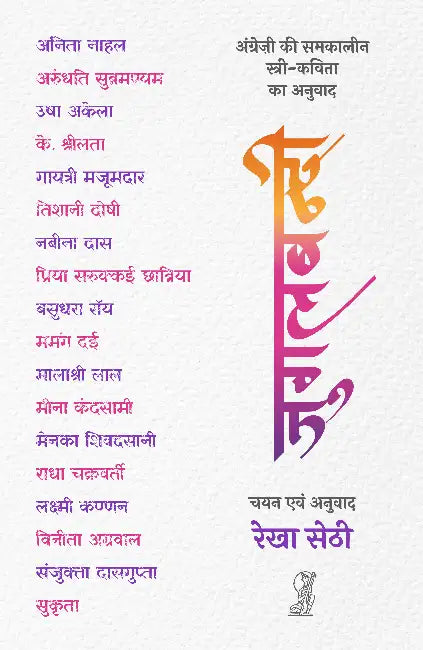 अनिता नाहल
अरुंधति सुब्रमण्यम
उषा अकेला
के. श्रीलता
गायत्री मजूमदार
तिशानी दोषी
नबीना दास
प्रिया सरुक्कई छाब्रिया
बसुधरा रॉय
ममंग दई
मालाश्री लाल
मीना कंदसामी
मेनका शिवदसानी
राधा चक्रवर्ती
लक्ष्मी कण्णन
विनीता अग्रवाल
संजुक्ता दासगुप्ता
सुकृता
अंग्रेज़ी की समकालीन
स्त्री-कविता
का अनुवाद
चयन एवं अनुवाद
रेखा सेठी